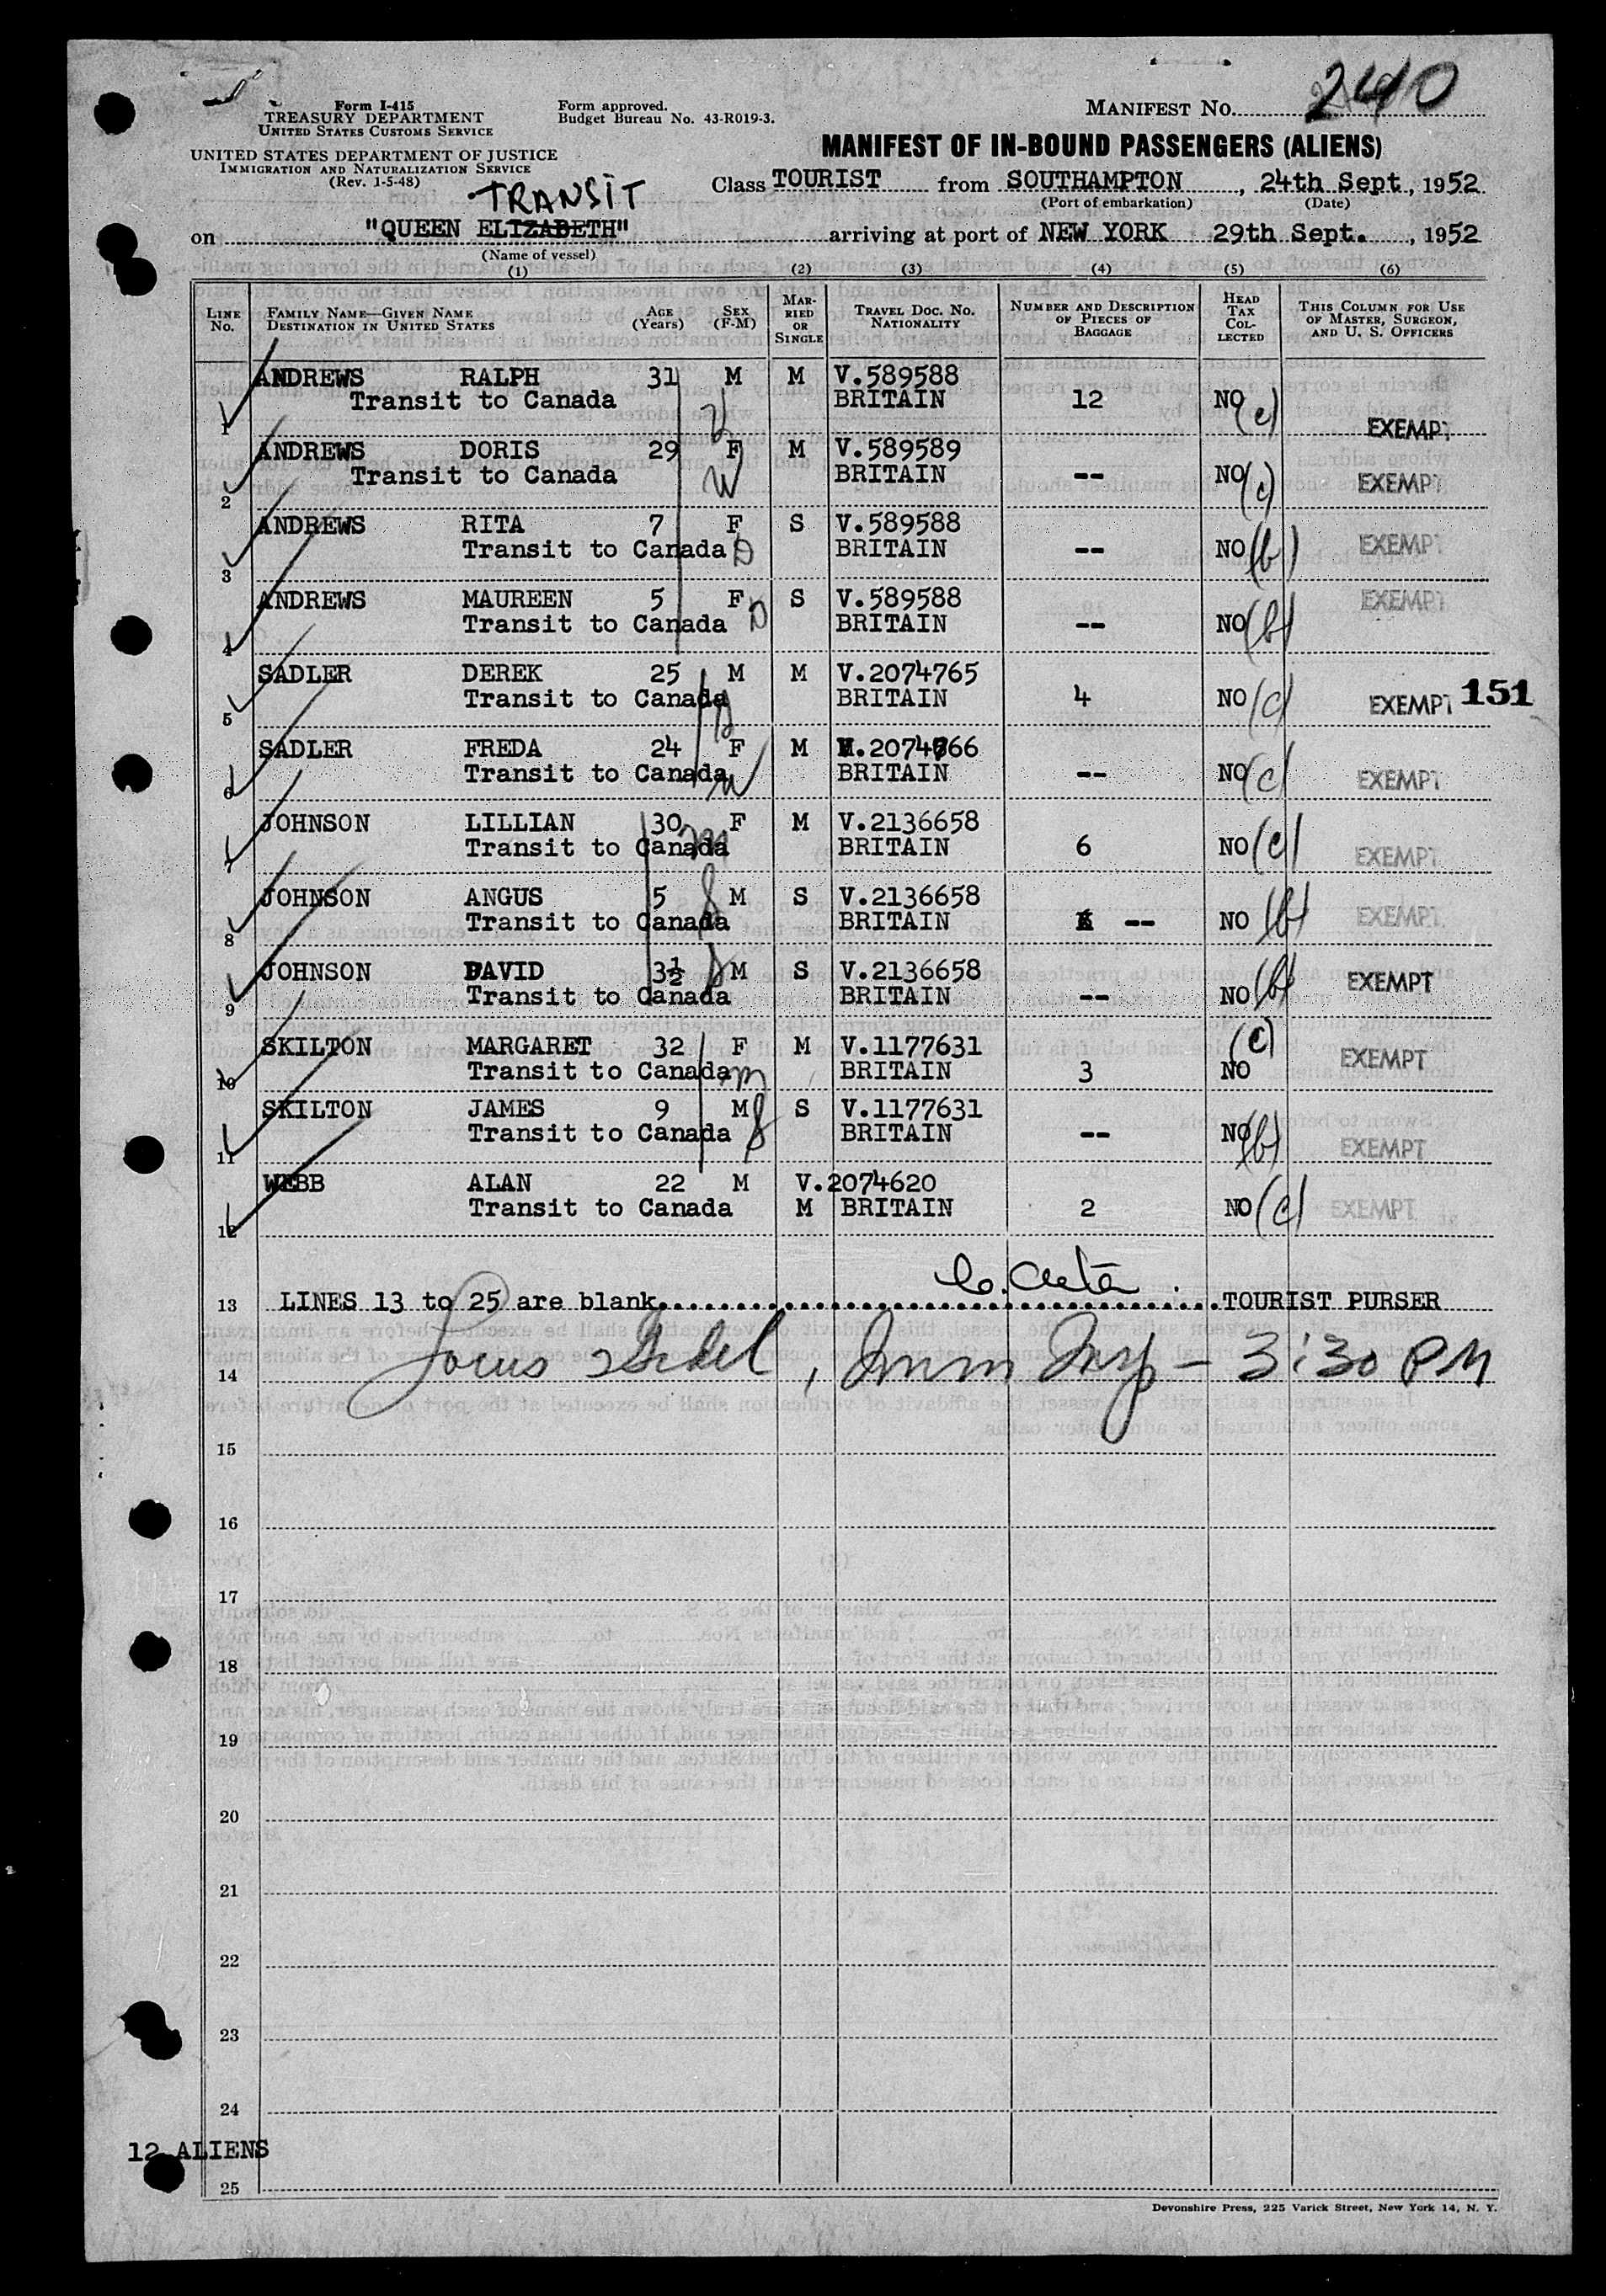 Form I-415
TREASURY DEPARTMENT
UNITED STATES CUSTOMS SERVICE
UNITED STATES DEPARTMENT OF JUSTICE
IMMIGRATION AND NATURALIZATION SERVICE
(Rev. 1-5-48)
Form approved.
Budget Bureau No. 43-R019-3.
MANIFEST No. 240
MANIFEST OF IN-BOUND PASSENGERS (ALIENS)
TRANSIT
Class TOURIST from SOUTHAMPTON, 24th Sept., 1952
(Port of embarkation) (Date)
on "QUEEN ELIZABETH" arriving at port of NEW YORK 29th Sept., 1952
(Name of vessel)
(1) (2) (3) (4) (5) (6)
LINE No. FAMILY NAME—GIVEN NAME DESTINATION IN UNITED STATES AGE (Years) SEX (F-M) MARRIED OR SINGLE TRAVEL DOC. NO. NATIONALITY NUMBER AND DESCRIPTION OF PIECES OF BAGGAGE HEAD TAX COLLECTED THIS COLUMN FOR USE OF MASTER, SURGEON, AND U. S. OFFICERS
ANDREWS RALPH 31 M M V.589588
1 Transit to Canada BRITAIN 12 NO (c) EXEMPT
ANDREWS DORIS 29 F M V.589589
2 Transit to Canada W BRITAIN -- NO (c) EXEMPT
ANDREWS RITA 7 F S V.589588
3 Transit to Canada D BRITAIN -- NO (b) EXEMPT
ANDREWS MAUREEN 5 F S V.589588
4 Transit to Canada D BRITAIN -- NO (b) EXEMPT
SADLER DEREK 25 M M V.2074765
5 Transit to Canada BRITAIN 4 NO (c) EXEMPT 151
SADLER FREDA 24 F M V.2074766
6 Transit to Canada W BRITAIN -- NO (c) EXEMPT
JOHNSON LILLIAN 30 F M V.2136658
7 Transit to Canada m BRITAIN 6 NO (c) EXEMPT
JOHNSON ANGUS 5 M S V.2136658
8 Transit to Canada BRITAIN -- NO (b) EXEMPT
JOHNSON DAVID 3½ M S V.2136658
9 Transit to Canada BRITAIN -- NO (b) EXEMPT
SKILTON MARGARET 32 F M V.1177631
10 Transit to Canada m BRITAIN 3 NO (c) EXEMPT
SKILTON JAMES 9 M S V.1177631
11 Transit to Canada BRITAIN -- NO (b) EXEMPT
WEBB ALAN 22 M V.2074620
12 Transit to Canada M BRITAIN 2 NO (c) EXEMPT
13 LINES 13 to 25 are blank TOURIST PURSER
14 Imm Insp - 3:30 PM
15
16
17
18
19
20
21
22
23
24
12 ALIENS
25
Devonshire Press, 225 Varick Street, New York 14, N. Y.